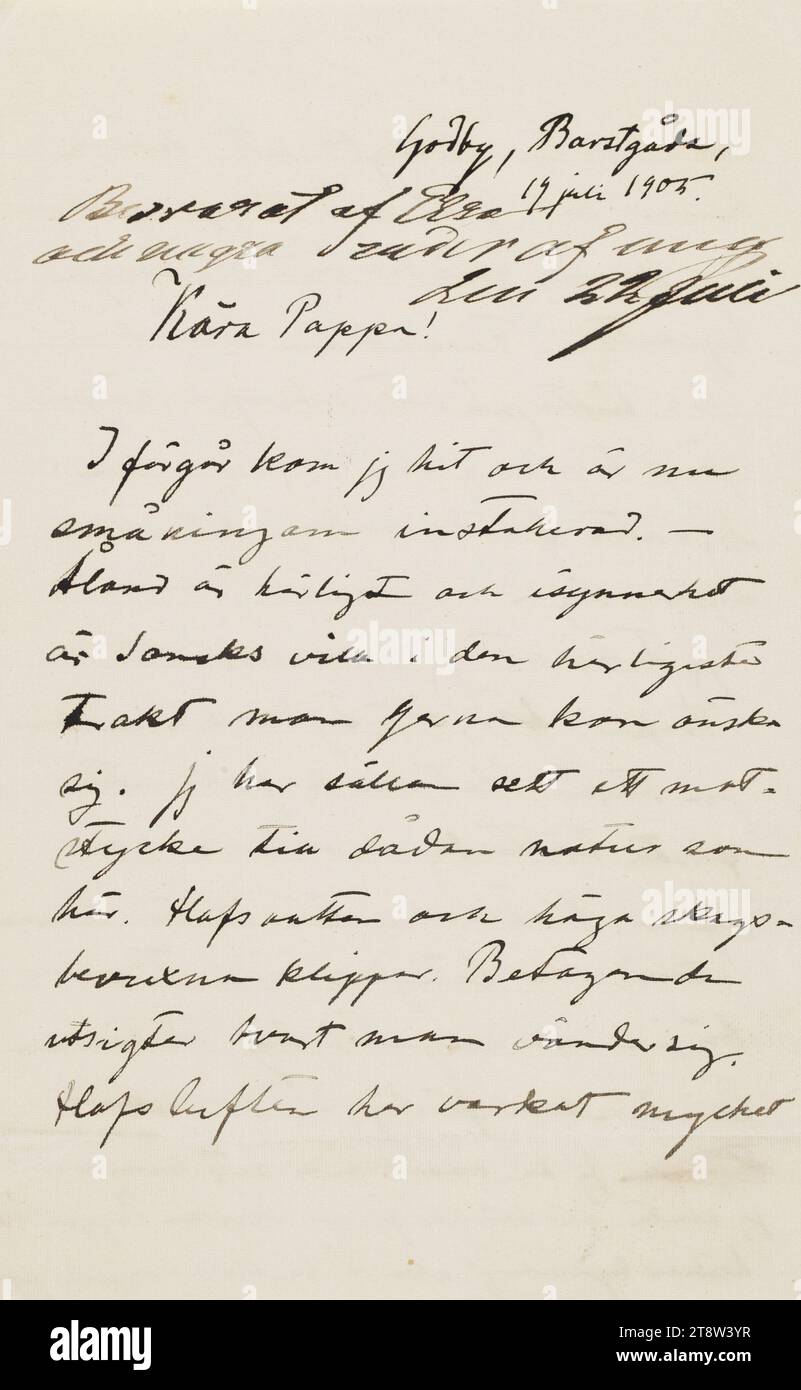 Godby, Barstgåda,
19 juli 1905.
Besvarat af Elsa
och några rader af mig
den 22 Juli
Kära Pappa!
I förgår kom jg hit och är nu
småningom installerad. –
Åland är härligt och isynnerhet
är villa i den härligaste
trakt man gerna kan önska
sig. jg har sällan sett ett mot-
stycke till sådan natur som
här. Hafsvatten och höga skogs-
bevuxna klippor. Betagande
utsigter hvart man vänder sig.
Hafsluften har verkat mycket
alamy
Image ID: 2T8W3YR
www.alamy.com